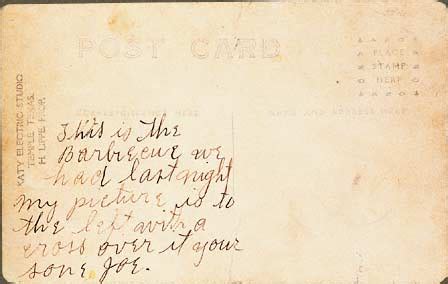 POST CARD
PLACE
STAMP
HERE
KATY ELECTRIC STUDIO
TEMPLE TEXAS.
H. LIPPE PROP.
CORRESPONDENCE HERE
NAME AND ADDRESS HERE
This is the
Barbecue we
had last night
my picture is to
the left with a
cross over it your
sone Joe.